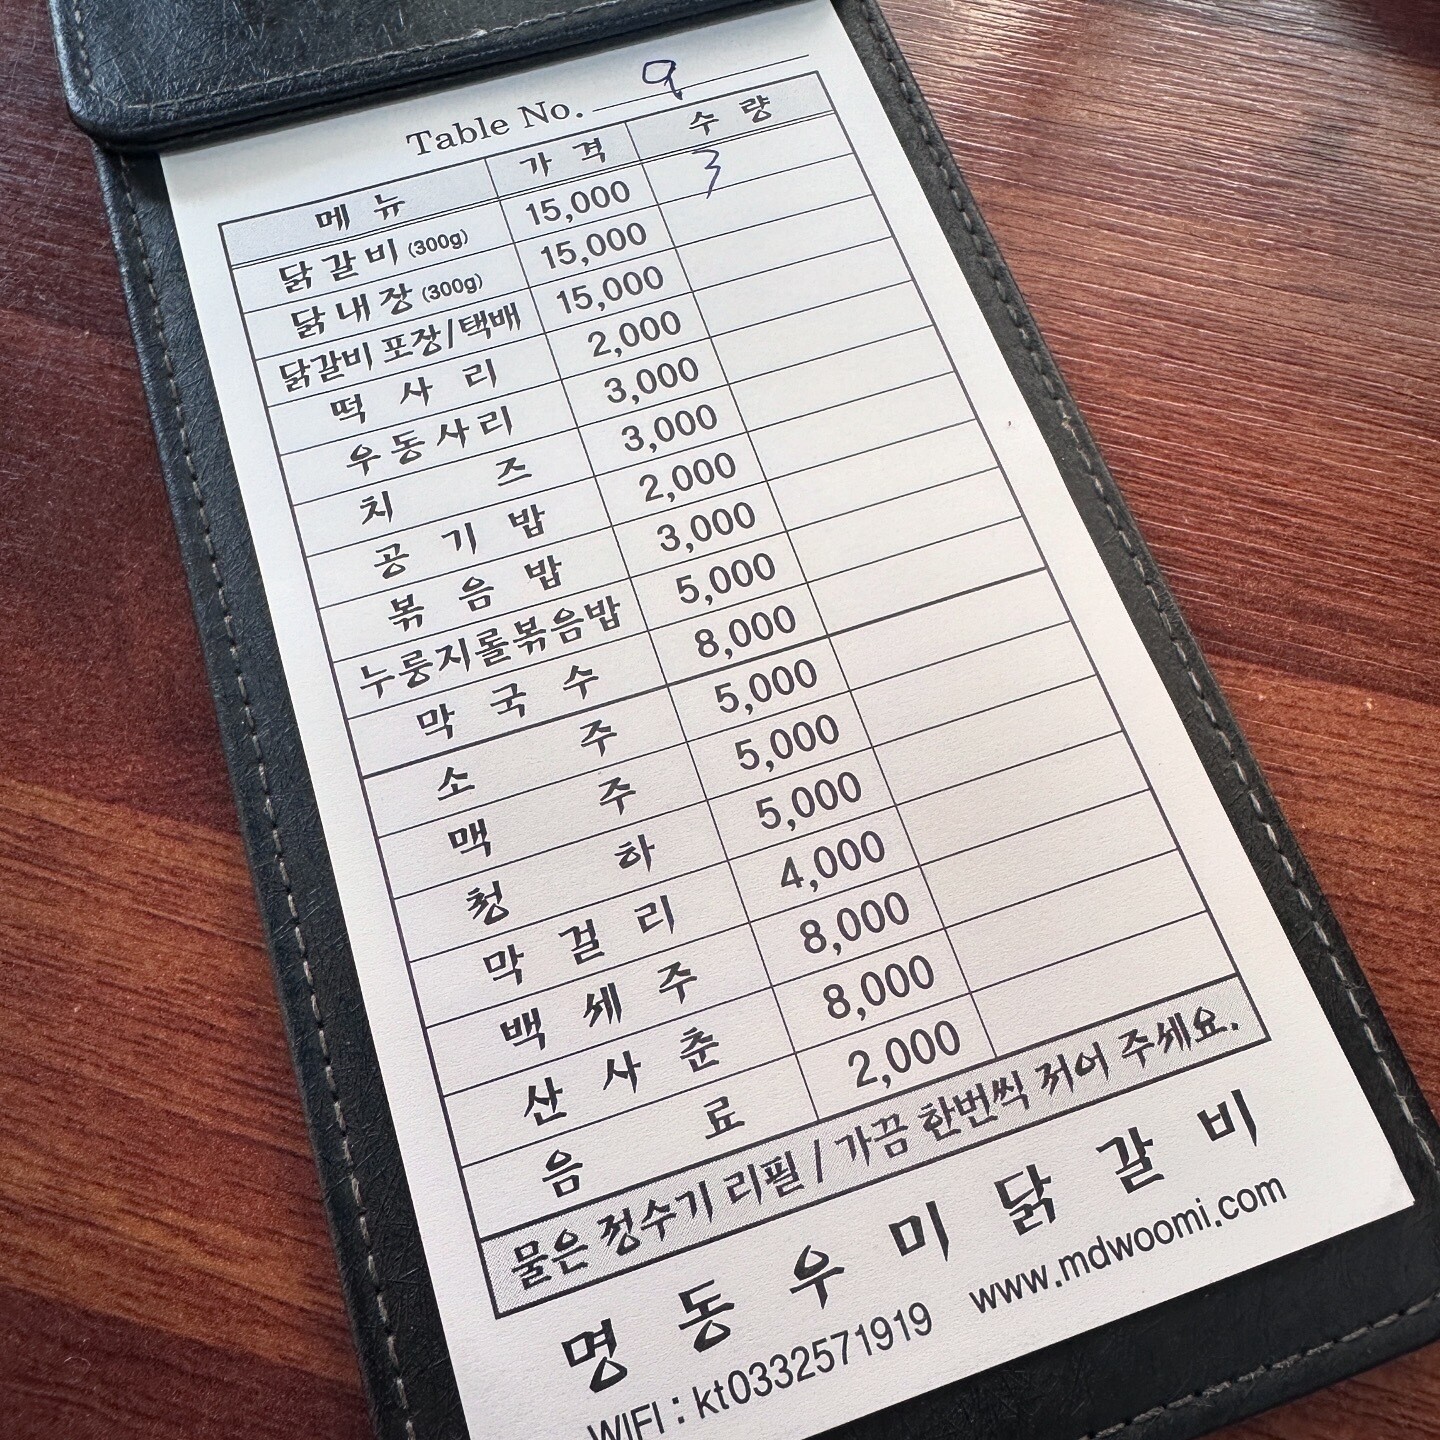 Table No. 9
메뉴 가격 수량
닭갈비 (300g) 15,000 3
닭내장 (300g) 15,000
닭갈비 포장/택배 15,000
떡사리 2,000
우동사리 3,000
치즈 3,000
공기밥 2,000
볶음밥 3,000
누룽지롤볶음밥 5,000
막국수 8,000
소주 5,000
맥주 5,000
청하 5,000
막걸리 4,000
백세주 8,000
산사춘 8,000
음료 2,000
물은 정수기 리필 / 가끔 한번씩 저어 주세요.
명동우미닭갈비
WIFI : kt0332571919 www.mdwoomi.com